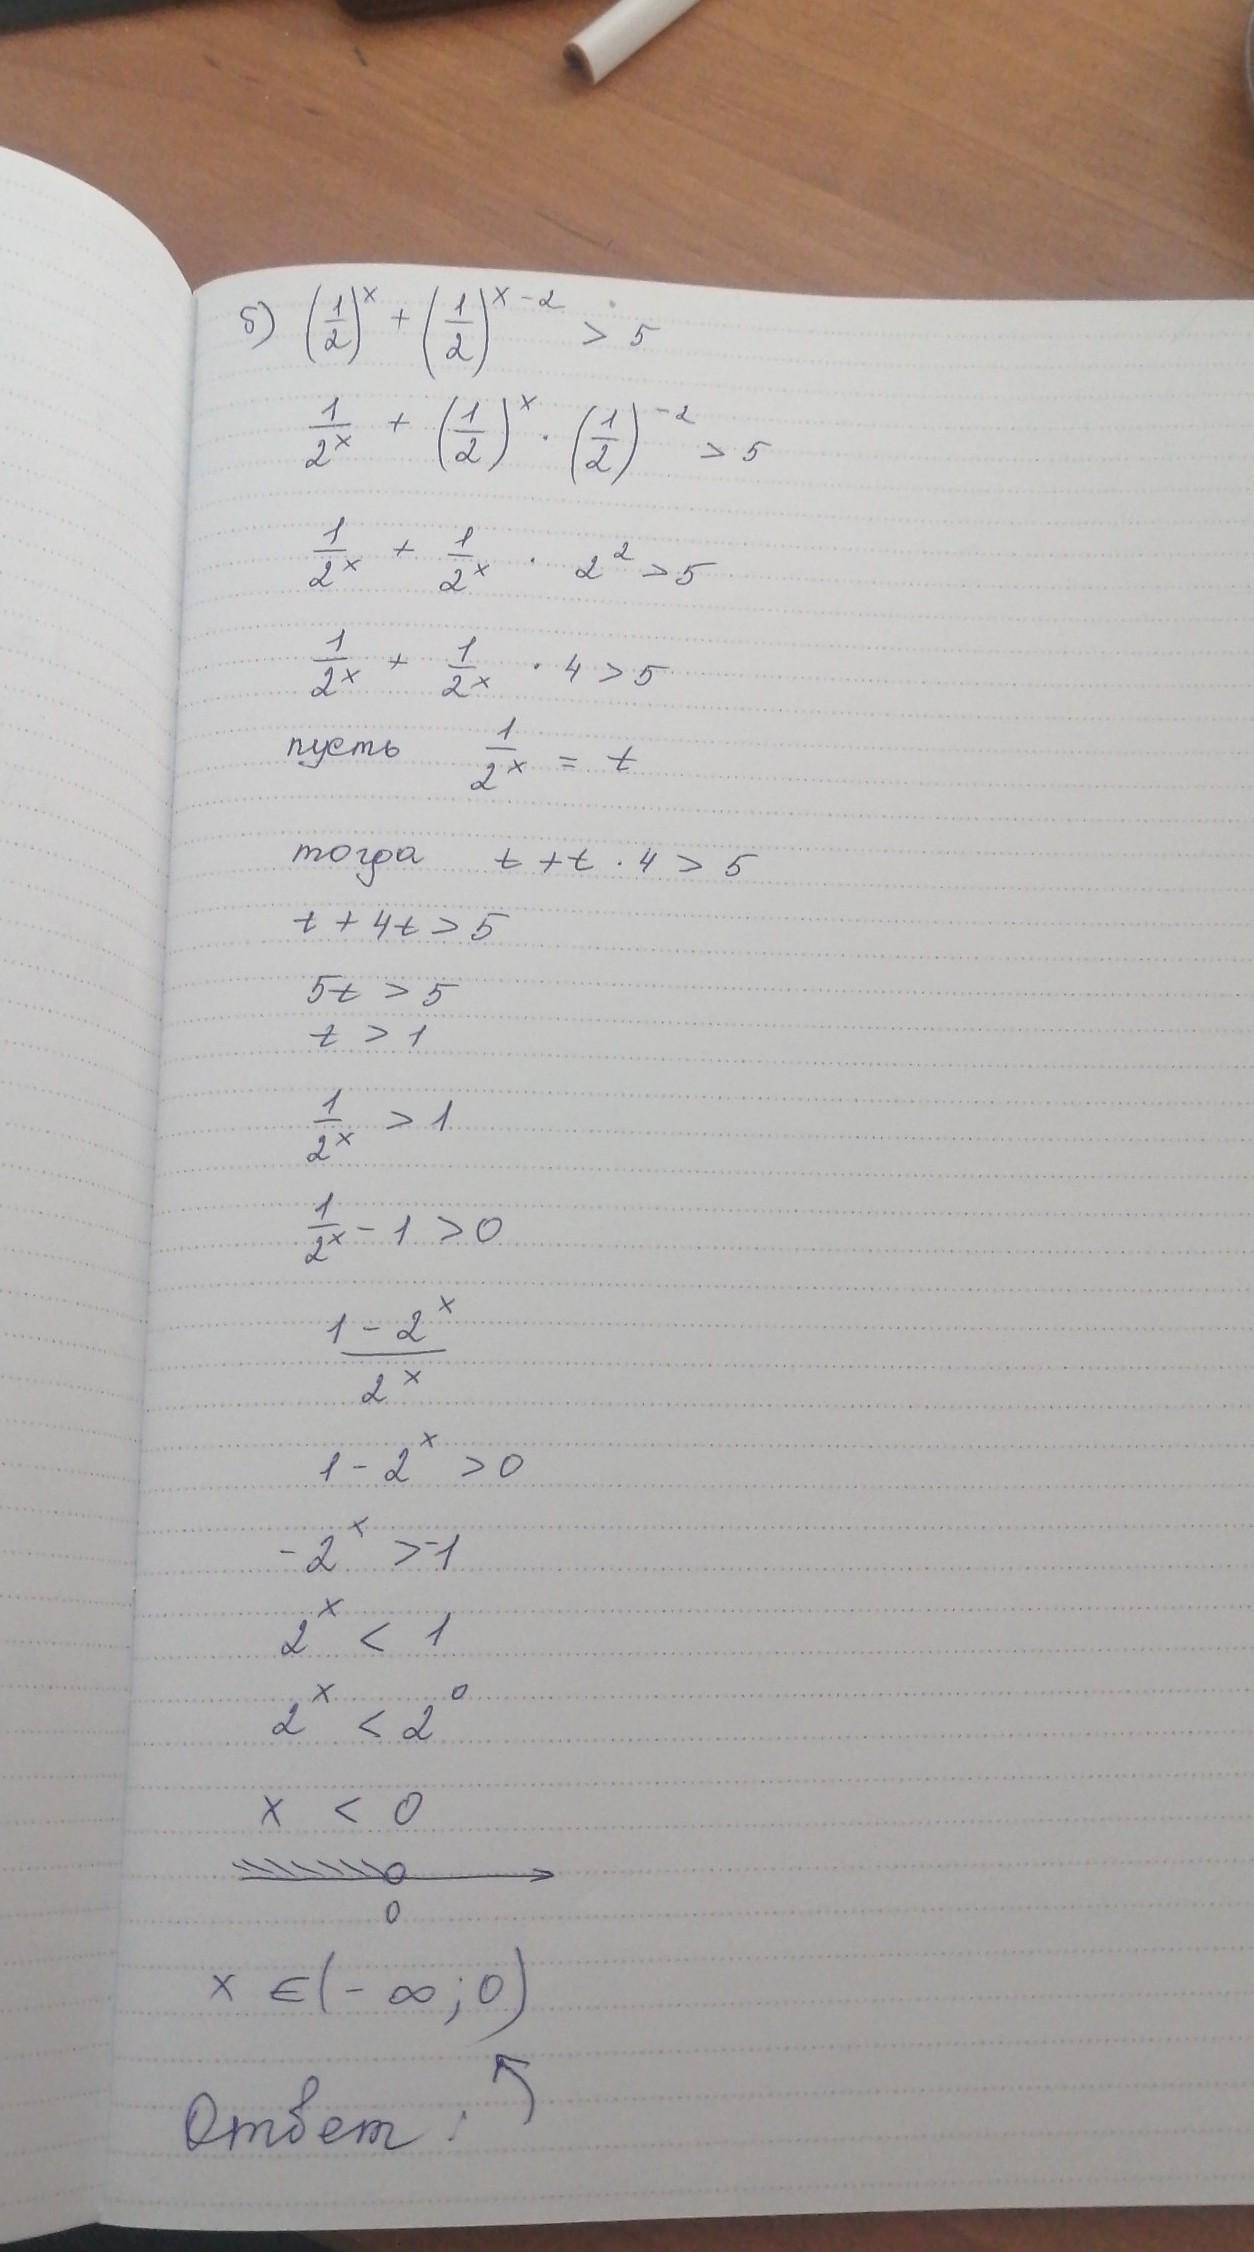 б) (1/2)^x + (1/2)^(x-2) > 5
1/2^x + (1/2)^x · (1/2)^(-2) > 5
1/2^x + 1/2^x · 2^2 > 5
1/2^x + 1/2^x · 4 > 5
пусть 1/2^x = t
тогда t + t · 4 > 5
t + 4t > 5
5t > 5
t > 1
1/2^x > 1
1/2^x - 1 > 0
(1 - 2^x)/2^x
1 - 2^x > 0
-2^x > -1
2^x < 1
2^x < 2^0
x < 0
0
x ∈ (-∞; 0)
Ответ: